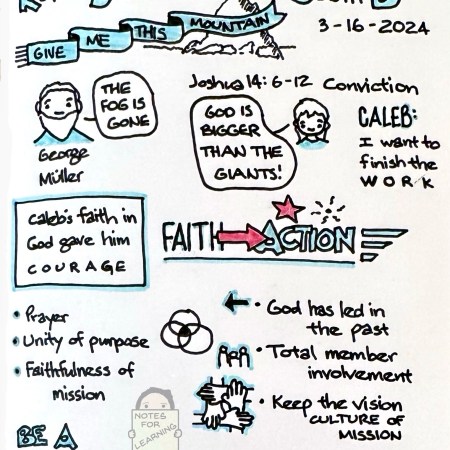 GIVE ME THIS MOUNTAIN
3-16-2024
Joshua 14:6-12 Conviction
THE
FOG IS
GONE
George
Müller
GOD IS
BIGGER
THAN THE
GIANTS!
CALEB:
I want to
finish the
WORK
Caleb's faith in
God gave him
COURAGE
FAITH ACTION
• Prayer
• Unity of purpose
• Faithfulness of
mission
• God has led in
the past
• Total member
involvement
• Keep the vision
CULTURE OF
MISSION
NOTES
FOR
LEARNING
BE A